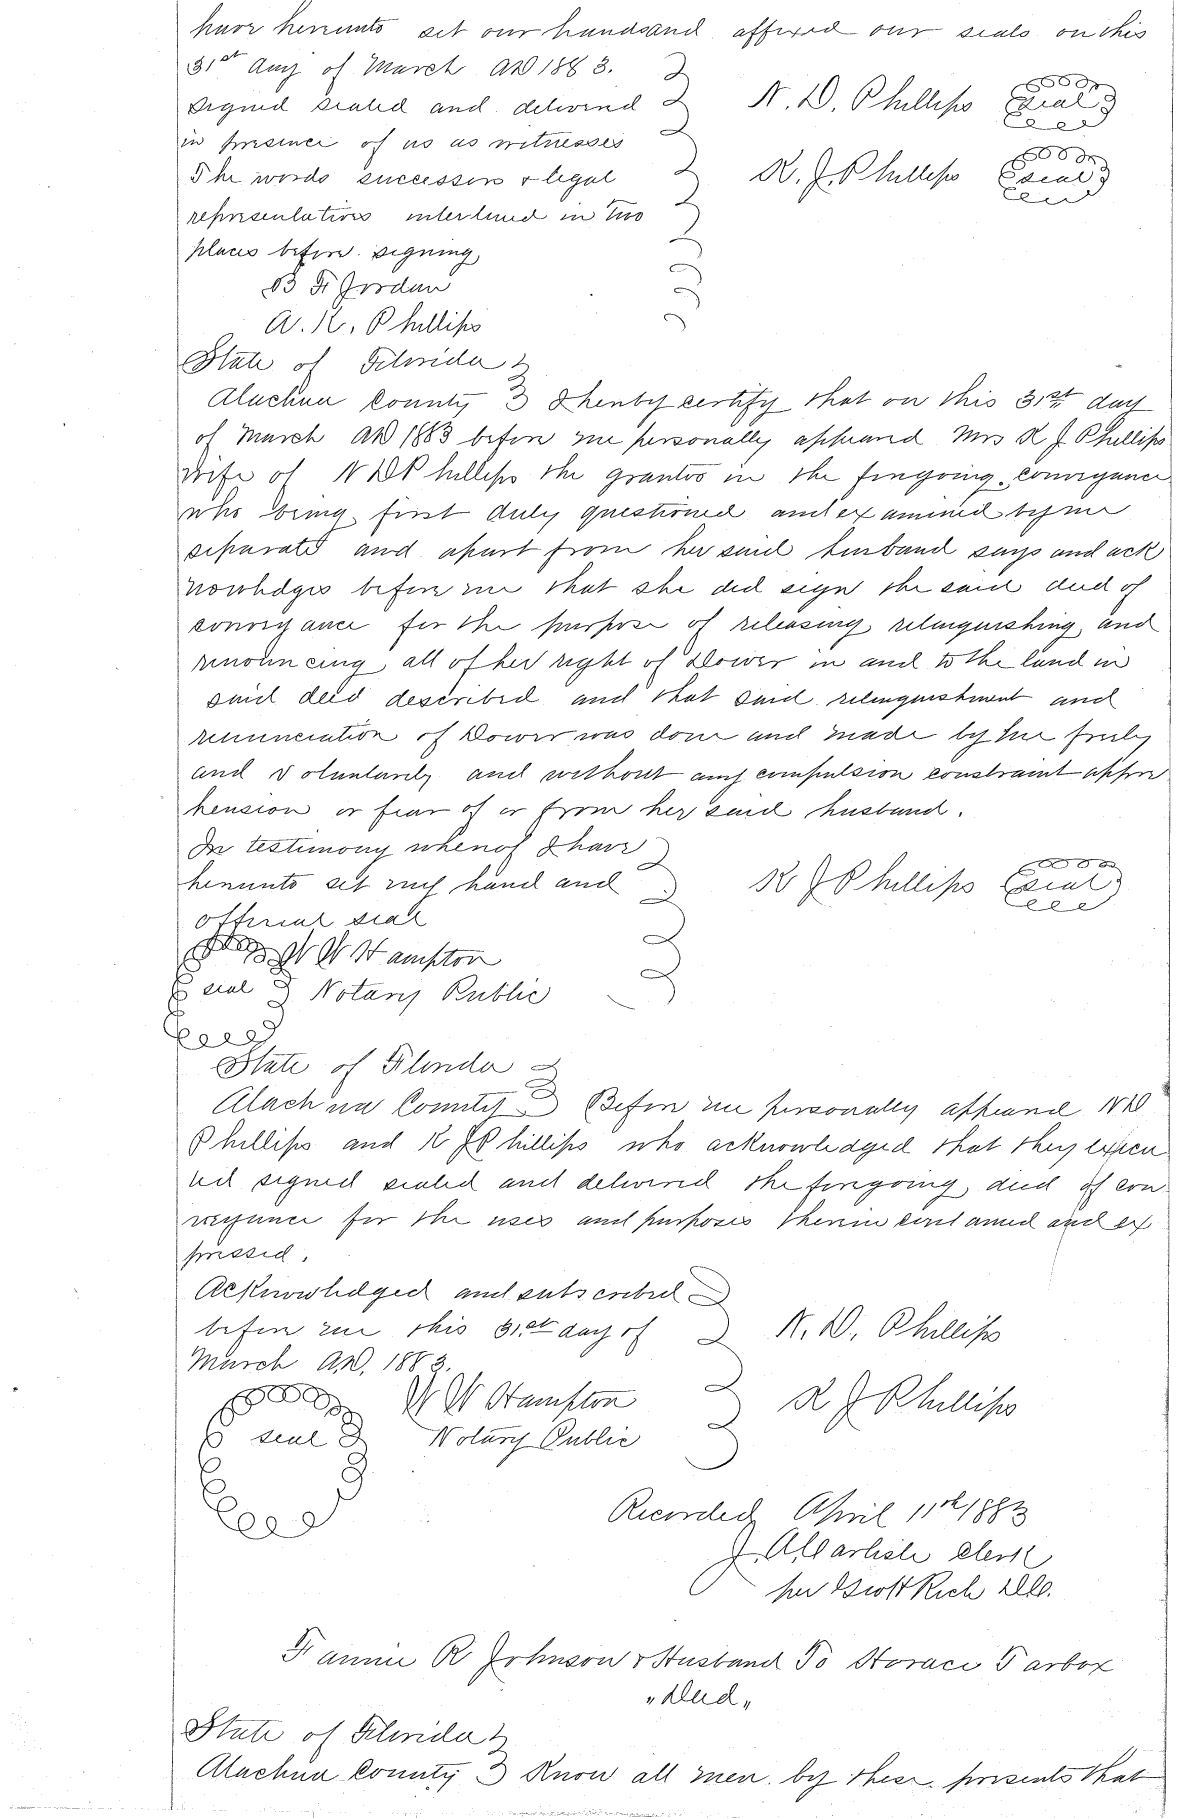 have hereunto set our hands and affixed our seals on this
31st day of March AD 1883.
Signed sealed and delivered N. D. Phillips seal
in presence of us as witnesses
The words successors & legal R. J. Phillips seal
representatives interlined in two
places before signing
B F Jordan
A. K. Phillips
State of Florida
Alachua County I hereby certify that on this 31st day
of March AD 1883 before me personally appeared Mrs R J Phillips
wife of N D Phillips the grantor in the foregoing conveyance
who being first duly questioned and examined by me
separate and apart from her said husband says and ack
nowledges before me that she did sign the said deed of
conveyance for the purpose of releasing relinquishing and
renouncing all of her right of Dower in and to the land in
said deed described and that said relinquishment and
renunciation of Dower was done and made by her freely
and voluntarily and without any compulsion constraint appre
hension or fear of or from her said husband.
In testimony whereof I have
hereunto set my hand and R J Phillips seal
official seal
W W Hampton
seal Notary Public
State of Florida
Alachua County Before me personally appeared N D
Phillips and R J Phillips who acknowledged that they execu
ted signed sealed and delivered the foregoing deed of con
veyance for the uses and purposes therein contained and ex
pressed.
Acknowledged and subscribed
before me this 31st day of N. D. Phillips
March AD. 1883.
W W Hampton R J Phillips
seal Notary Public
Recorded April 11th 1883
J. A. Carlisle Clerk
per Scott Rich D.C.
Fannie R Johnson & Husband To Horace Tarbox
"Deed"
State of Florida
Alachua County Know all men by these presents that